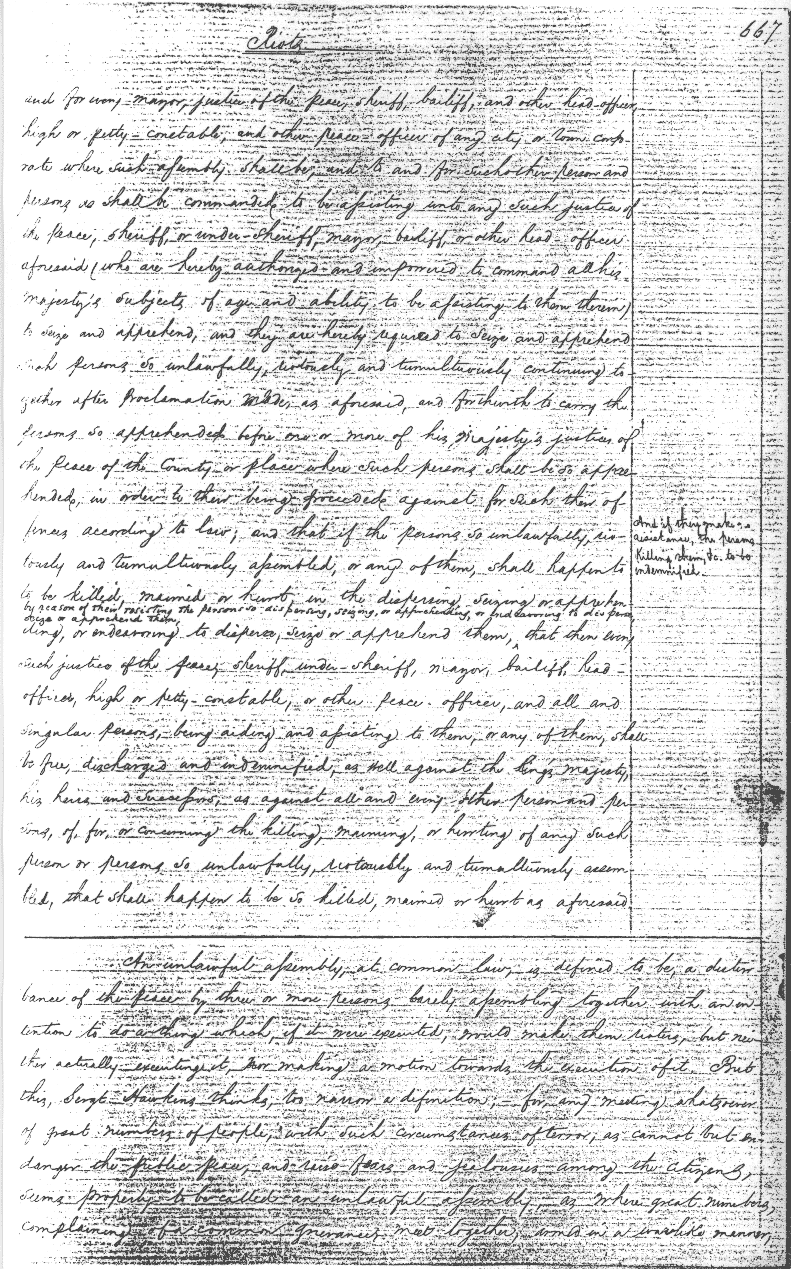 Riots
667
and for every mayor, justice of the peace, sheriff, bailiff, and other head-officer,
high or petty-constable, and other peace-officer of any city or town corpo-
rate where such assembly shall be, and to and for such other person and
persons as shall be commanded to be assisting unto any such justice of
the peace, sheriff, or under-sheriff, mayor, bailiff, or other head-officer
aforesaid (who are hereby authorized and impowered to command all his
majesty's subjects of age and ability to be assisting to them therein)
to seize and apprehend, and they are hereby required to seize and apprehend
such persons so unlawfully, riotously and tumultuously continuing to-
gether after Proclamation made, as aforesaid, and forthwith to carry the
persons so apprehended before one or more of his majesty's justices of
the peace of the County or place where such persons shall be so appre-
hended, in order to their being proceeded against for such their of-
fences according to law; and that if the persons so unlawfully, rio-
tously and tumultuously assembled, or any of them, shall happen to
to be killed, maimed or hurt, in the dispersing, seizing or apprehen-
by reason of their resisting the persons so dispersing, seizing, or apprehending, or endeavoring to disperse,
seize or apprehend them,
ding, or endeavoring to disperse, seize or apprehend them, ^ that then every
such justice of the peace, sheriff, under-sheriff, mayor, bailiff, head-
officer, high or petty-constable, or other peace-officer, and all and
singular persons, being aiding and assisting to them, or any of them, shall
be free, discharged and indemnified, as well against the king's majesty,
his heirs and successors, as against all and every other person and per-
sons, of, for, or concerning the killing, maiming, or hurting of any such
person or persons so unlawfully, riotously and tumultuously assem-
bled, that shall happen to be so killed, maimed or hurt as aforesaid
And if they make
resistance, the persons
killing them, &c. to be
indemnified.
An unlawful assembly, at common law, is defined to be, a distur-
bance of the peace by three or more persons barely assembling together with an in-
tention to do a thing which, if it were executed, would make them rioters, but nei-
ther actually executing it, nor making a motion towards the execution of it. But
this, Sergt. Hawkins thinks, too narrow a definition, for any meeting whatsoever
of great numbers of people, with such circumstances of terror, as cannot but en-
danger the public peace, and raise fears and jealousies among the citizens,
seems properly to be called an unlawful assembly, as where great numbers,
complaining of a common grievance, meet together, armed in a warlike manner,